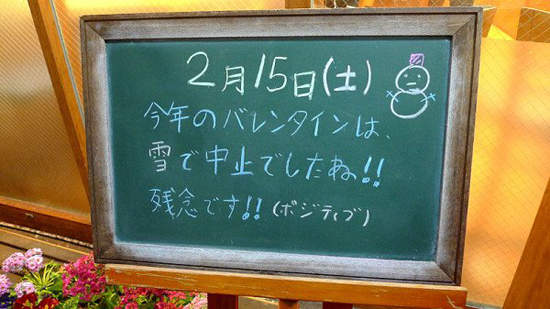 2月15日(土)
今年のバレンタインは、
雪で中止でしたね!!
残念です!!(ポジティブ)